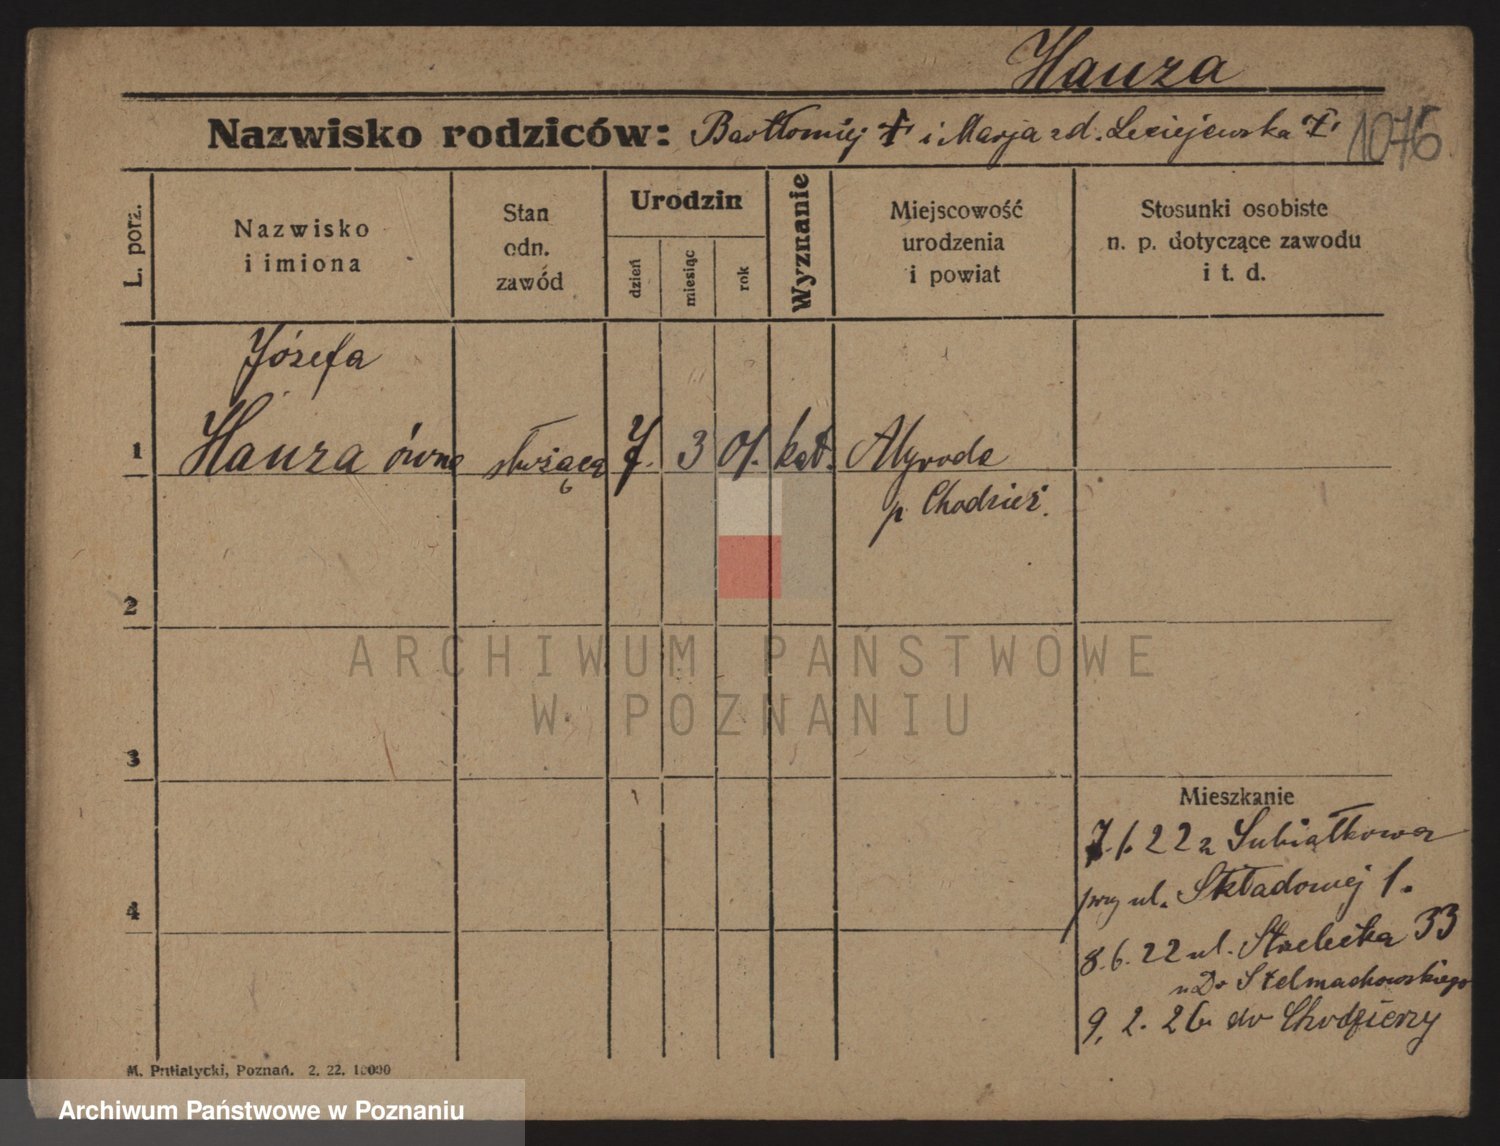 Hauza
Nazwisko rodziców: Bartłomiej † i Marja zd. Leciejewska † 1076
L. porz.
Nazwisko
i imiona
Stan
odn.
zawód
Urodzin
dzień
miesiąc
rok
Wyznanie
Miejscowość
urodzenia
i powiat
Stosunki osobiste
n. p. dotyczące zawodu
i t. d.
Józefa
1 Hauza ówna służąca 7. 3 01. kat.
p. Chodzież.
2
3
4
Mieszkanie
7.1.22 z
przy ul. Składowej 1.
8.6.22 ul. Strzelecka 33
u Dr Stelmachowskiego
9.2.26 do Chodzieży
M. Putiatycki, Poznań. 2. 22. 10000
ARCHIWUM PAŃSTWOWE
W POZNANIU
Archiwum Państwowe w Poznaniu